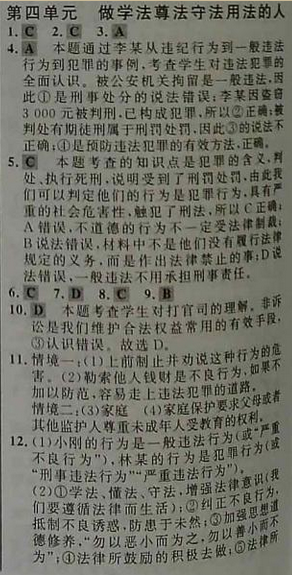 第四单元 做学法尊法守法用法的人
1. C 2. C 3. A
4. A 本题通过李某从违纪行为到一般违法
行为到犯罪的事例,考查学生对违法犯罪的
全面认识。被公安机关拘留是一般违法,因
此①是刑事处分的说法错误;李某因盗窃
3 000 元被判刑,已构成犯罪,所以②正确;被
判处有期徒刑属于刑罚处罚,因此③的说法不
正确;④是预防违法犯罪的有效方法,正确。
5. C 本题考查的知识点是犯罪的含义,判
处、执行死刑,说明受到了刑罚处罚,由此我
们可以判定他们的行为是犯罪行为,具有严
重的社会危害性,触犯了刑法,所以 C 正确;
A 错误,不道德的行为不一定受法律制裁;
B 说法错误,材料中不是他们没有履行法律
规定的义务,而是作出法律禁止的事;D 说
法错误,一般违法不用承担刑事责任。
6. C 7. D 8. C 9. B
10. D 本题考查学生对打官司的理解。非诉
讼是我们维护合法权益常用的有效手段,
③认识错误。故选 D。
11. 情境一:(1)上前制止并劝说这种行为的危
害。(2)勒索他人钱财是不良行为,如果不
加以防范,容易走上违法犯罪的道路。
情境二:(3)家庭 (4)家庭保护要求父母或者
其他监护人尊重未成年人受教育的权利。
12. (1)小刚的行为是一般违法行为(或“严重
不良行为”),林某的行为是犯罪行为(或
“刑事违法行为”“严重违法行为”)。
(2)①学法、懂法、守法,增强法律意识(我
们要遵循法律而生活);②纠正不良行为,
抵制不良诱惑,防患于未然;③加强思想道
德修养,“勿以恶小而为之,勿以善小而不
为”;④法律所鼓励的积极去做;⑤法律所